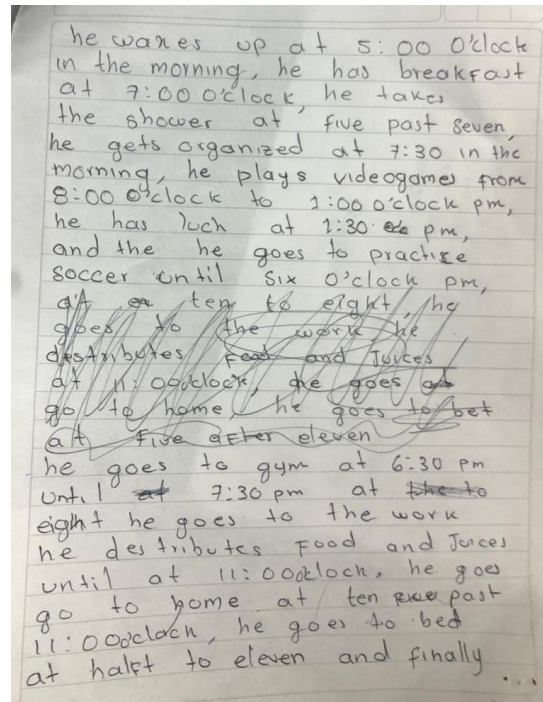 he wakes up at 5:00 O'clock
in the morning, he has breakfast
at 7:00 O'clock, he takes
the shower at five past seven,
he gets organized at 7:30 in the
morning, he plays videogames from
8:00 O'clock to 1:00 o'clock pm,
he has luch at 1:30 pm,
and the he goes to practise
soccer until six o'clock pm,
at ten to eight, he
goes to the work he
destributes Food and Juices
at 11:00oclock, he goes
go to home, he goes to bet
at five after eleven
he goes to gym at 6:30 pm
until at 7:30 pm at the to
eight he goes to the work
he destributes Food and Juices
until at 11:00oclock, he goes
go to home at ten past
11:00oclock, he goes to bed
at halft to eleven and finally
...